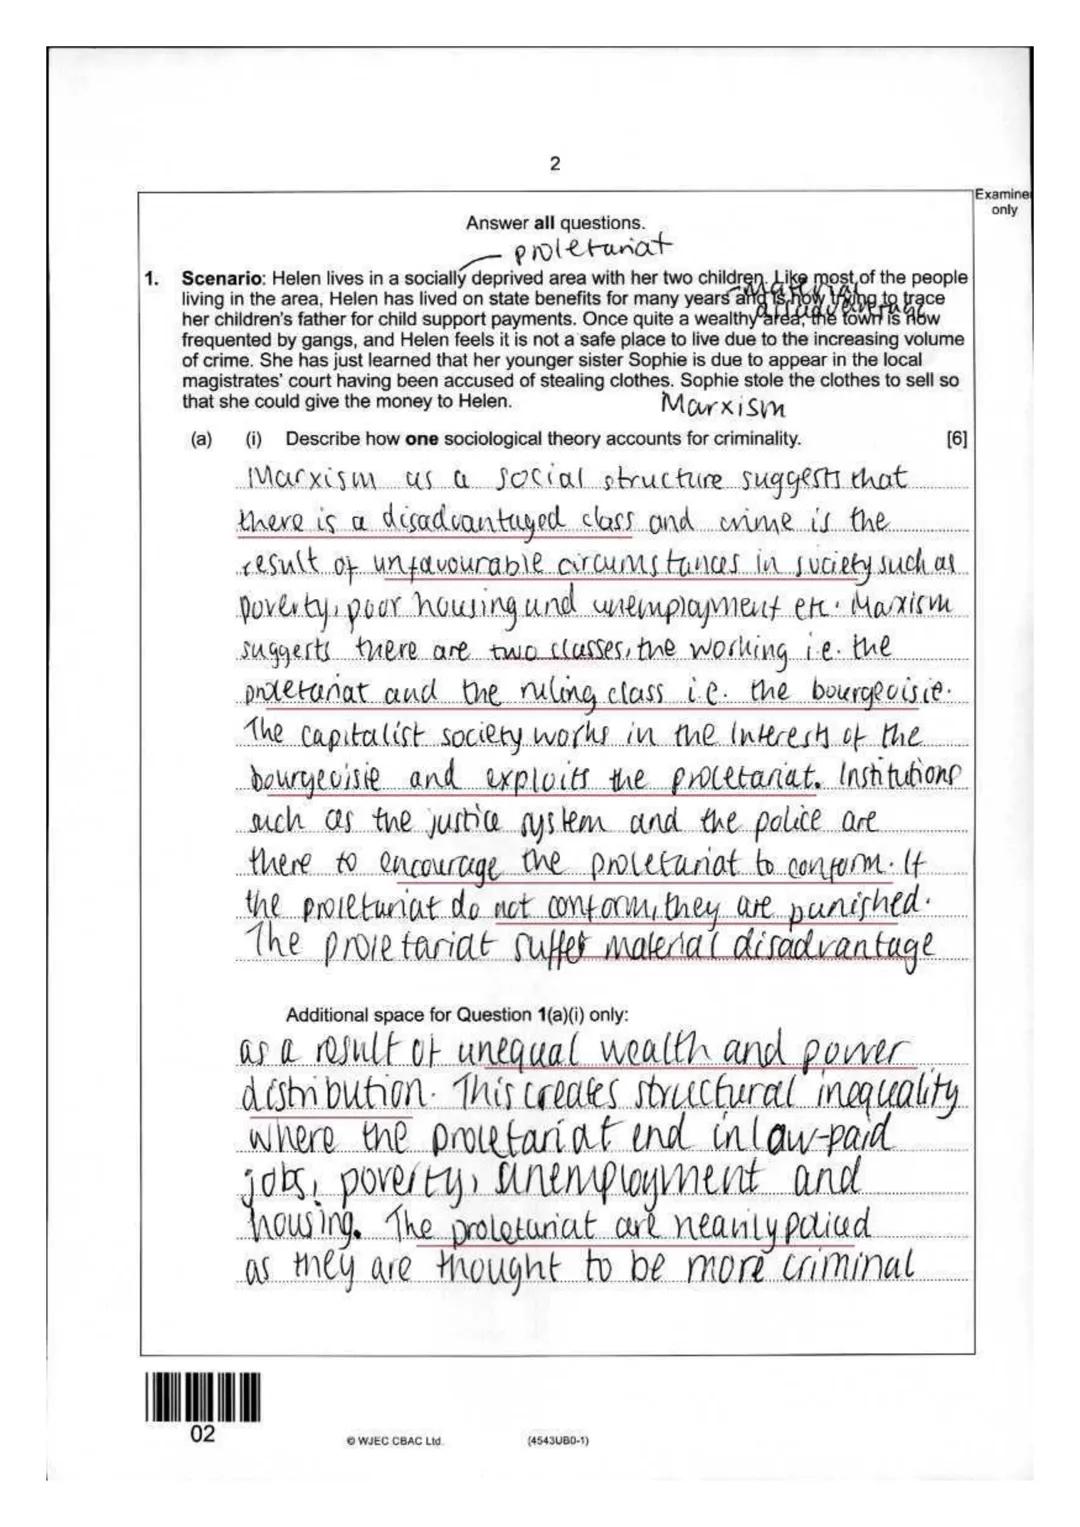 2
Examine
only
Answer all questions.
proletariat
1. Scenario: Helen lives in a socially deprived area with her two children. Like most of the people
material
living in the area, Helen has lived on state benefits for many years and is now trying to trace
disadvantage
her children's father for child support payments. Once quite a wealthy area, the town is now
frequented by gangs, and Helen feels it is not a safe place to live due to the increasing volume
of crime. She has just learned that her younger sister Sophie is due to appear in the local
magistrates' court having been accused of stealing clothes. Sophie stole the clothes to sell so
that she could give the money to Helen.
Marxism
(a) (i) Describe how one sociological theory accounts for criminality. [6]
Marxism as a social structure suggests that
there is a disadvantaged class and crime is the
result of unfavourable circumstances in society such as
poverty, poor housing and unemployment etc. Marxism
suggests there are two classes, the working i.e. the
proletariat and the ruling class i.e. the bourgeoisie.
The capitalist society works in the interests of the
bourgeoisie and exploits the proletariat. Institutions
such as the justice system and the police are
there to encourage the proletariat to conform. If
the proletariat do not conform, they are punished.
The proletariat suffer material disadvantage
Additional space for Question 1(a)(i) only:
as a result of unequal wealth and power
distribution. This creates structural inequality
where the proletariat end in law-paid
jobs, poverty, unemployment and
housing. The proletariat are heavily policed
as they are thought to be more criminal
02
© WJEC CBAC Ltd.
(4543UB0-1)